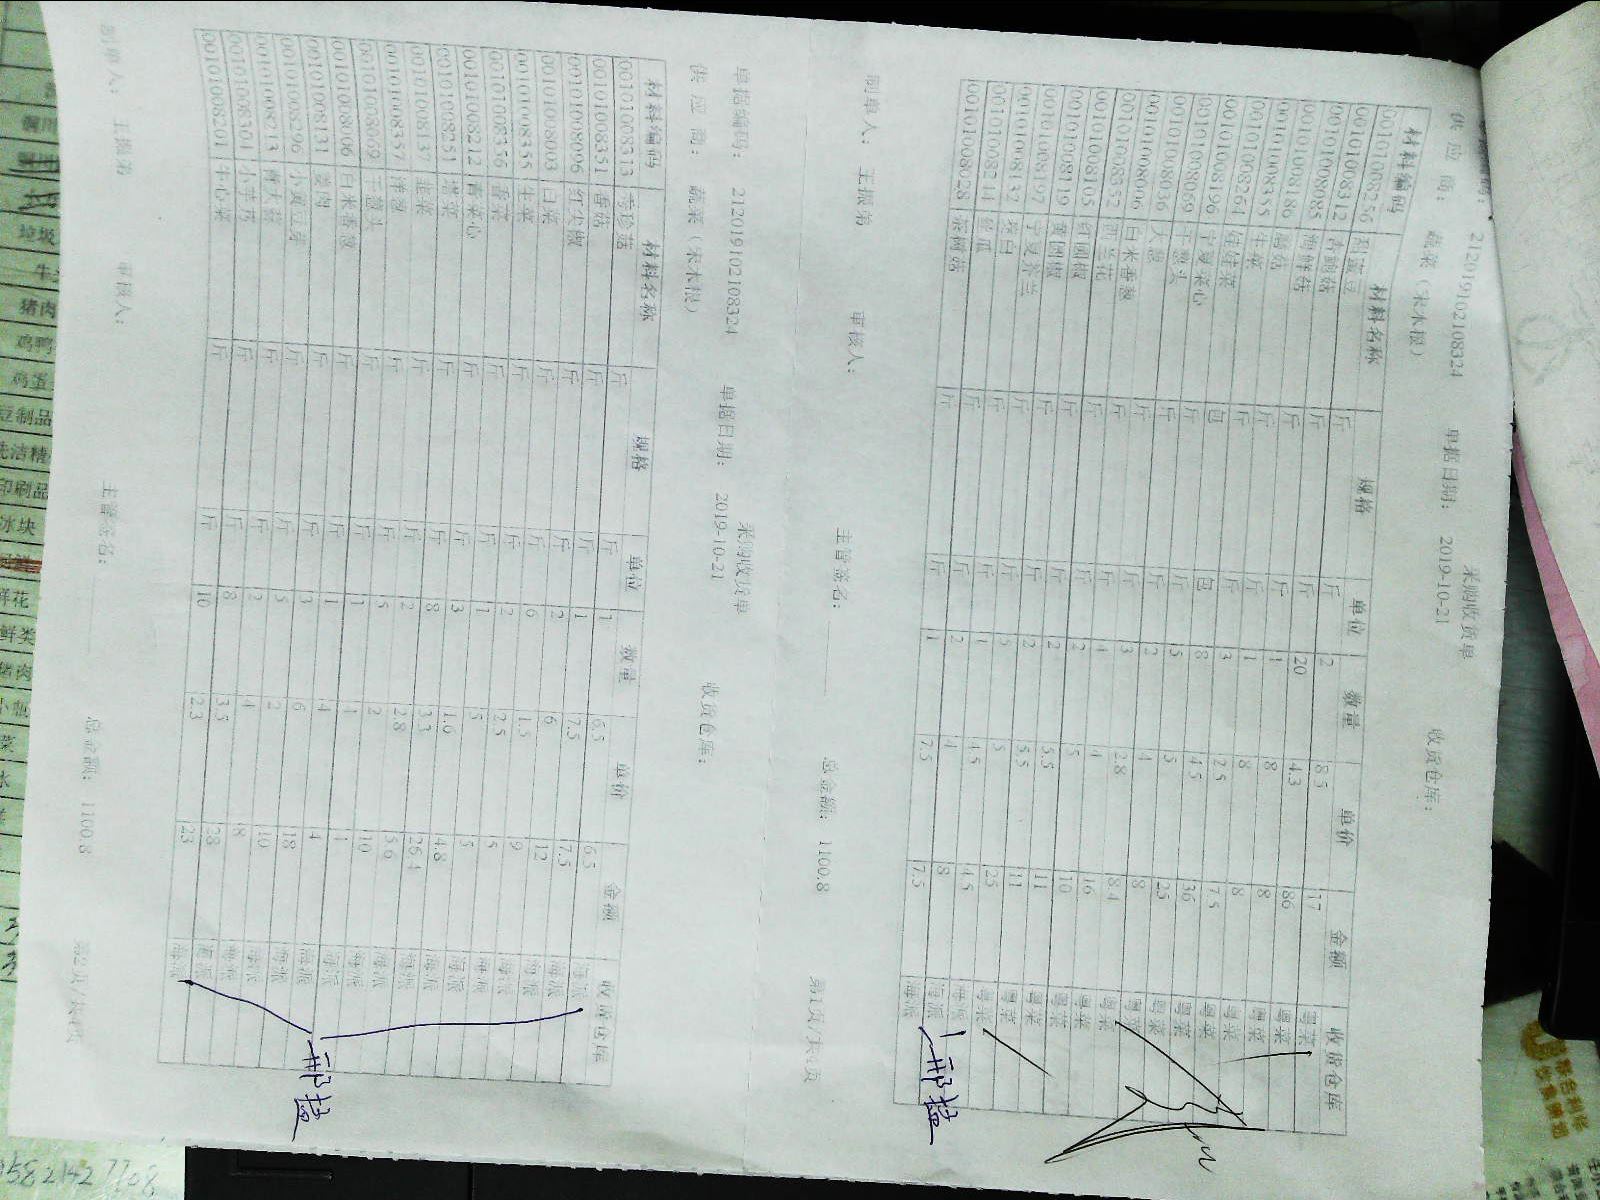 采购收货单
单据编码： 2120191021083​24 单据日期： 2019-10-21 收货仓库：
供 应 商： 蔬菜（宋木根）
材料编码 材料名称 规格 单位 数量 单价 金额 收货仓库
001010008256 荷兰豆 斤 斤 2 8.5 17 粤菜
001010008312 斤 斤 20 4.3 86 粤菜
001010008085 斤 斤 1 8 8 粤菜
001010008186 斤 斤 1 8 8 粤菜
001010008355 生菜 斤 斤 3 2.5 7.5 粤菜
001010008264 娃娃菜 包 包 8 4.5 36 粤菜
001010008196 宁夏菜心 斤 斤 5 5 25 粤菜
001010008069 干葱头 斤 斤 2 4 8 粤菜
001010008036 大葱 斤 斤 3 2.8 8.4 粤菜
001010008006 白米香葱 斤 斤 4 4 16 粤菜
001010008352 西兰花 斤 斤 2 5 10 粤菜
001010008105 红圆椒 斤 斤 2 5.5 11 粤菜
001010008119 黄圆椒 斤 斤 2 5.5 11 粤菜
001010008197 宁夏芥兰 斤 斤 5 5 25 粤菜
001010008132 茭白 斤 斤 1 4.5 4.5 海派
001010008244 斤 斤 2 4 8 海派
001010008028 茶树菇 斤 斤 1 7.5 7.5 海派
制单人： 王振弟 审核人： 主管签名： 总金额： 1100.8 第1页/共4页
采购收货单
单据编码： 212019102108324 单据日期： 2019-10-21 收货仓库：
供 应 商： 蔬菜（宋木根）
材料编码 材料名称 规格 单位 数量 单价 金额 收货仓库
001010008313 杏珍菇 斤 斤 1 6.5 6.5 海派
001010008351 香菇 斤 斤 1 7.5 7.5 海派
001010008096 红尖椒 斤 斤 2 6 12 海派
001010008003 白菜 斤 斤 6 1.5 9 海派
001010008355 生菜 斤 斤 2 2.5 5 海派
001010008356 香菜 斤 斤 1 5 5 海派
001010008212 青菜心 斤 斤 3 1.6 4.8 海派
001010008251 塔菜 斤 斤 8 3.3 26.4 海派
001010008137 韭菜 斤 斤 2 2.8 5.6 海派
001010008357 洋葱 斤 斤 5 2 10 海派
001010008069 干葱头 斤 斤 1 4 4 海派
001010008006 白米香葱 斤 斤 1 4 4 海派
001010008131 姜肉 斤 斤 3 6 18 海派
001010008296 小黄豆芽 斤 斤 5 2 10 海派
001010008213 青大蒜 斤 斤 2 4 8 海派
001010008301 小芋艿 斤 斤 8 3.5 28 海派
001010008201 牛心菜 斤 斤 10 2.3 23 海派
制单人： 王振弟 审核人： 主管签名： 总金额： 1100.8 第2页/共4页
垃圾
猪肉
鸡鸭
豆制品
洗洁精
印刷品
冰块
鲜花